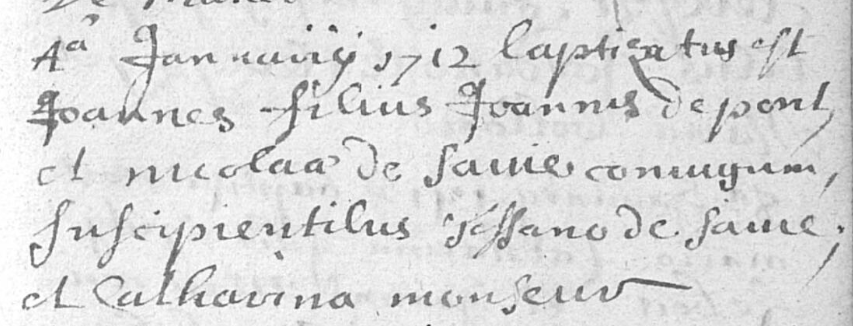 4a Januarii 1712 baptizatus est
Joannes filius Joannis de pont
et nicolaa de saive coniugum,
suscipientibus de saive,
et Catharina monseur